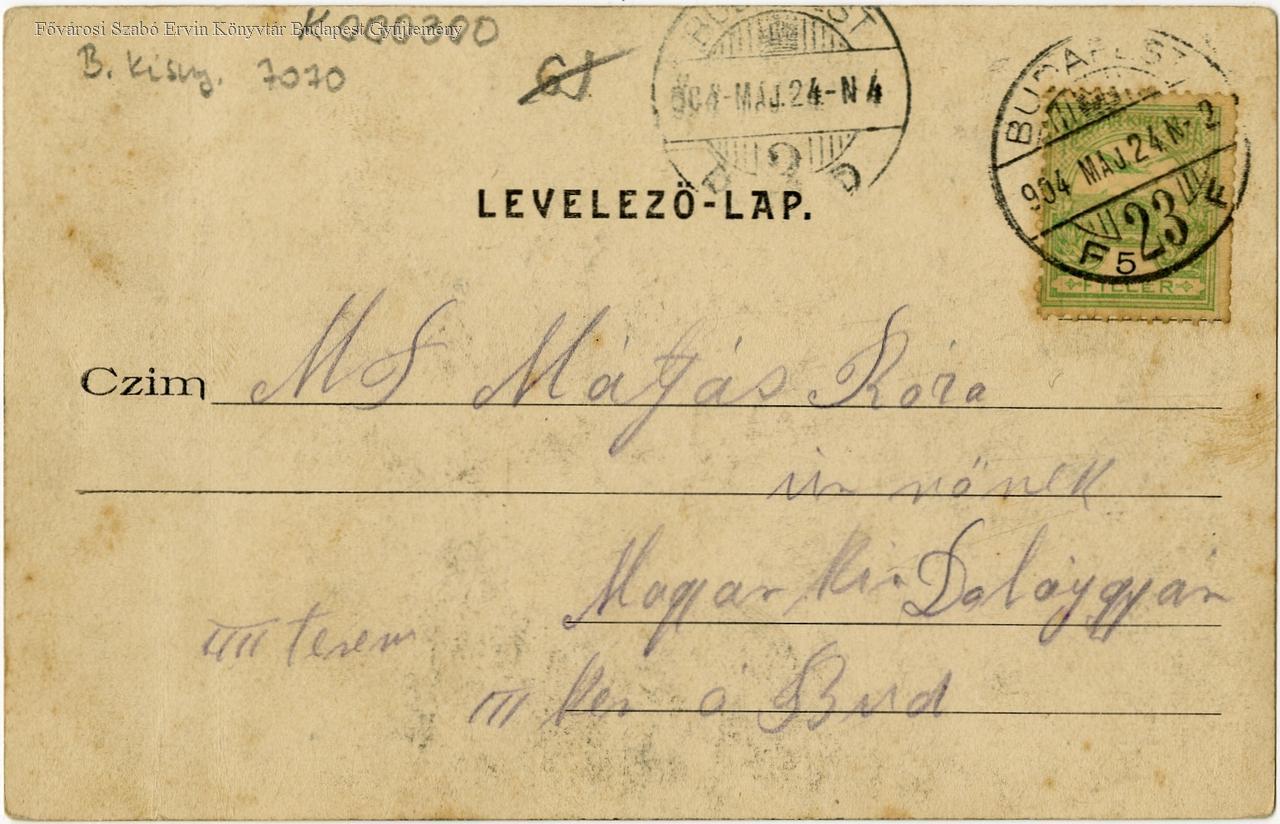 Fővárosi Szabó Ervin Könyvtár Budapest Gyűjtemény
K 000300
B. Kisny. 7070
61
BUDAPEST
904-MAJ.24-N4
3
D
BUDAPEST
904 MAJ 24 N-2
23
F 5 F
FILLER
LEVELEZŐ-LAP.
Czim MS Mátjás Róra
úr nőnek
Magyar Kir Doláygyár
III terem
III ker ó Bud